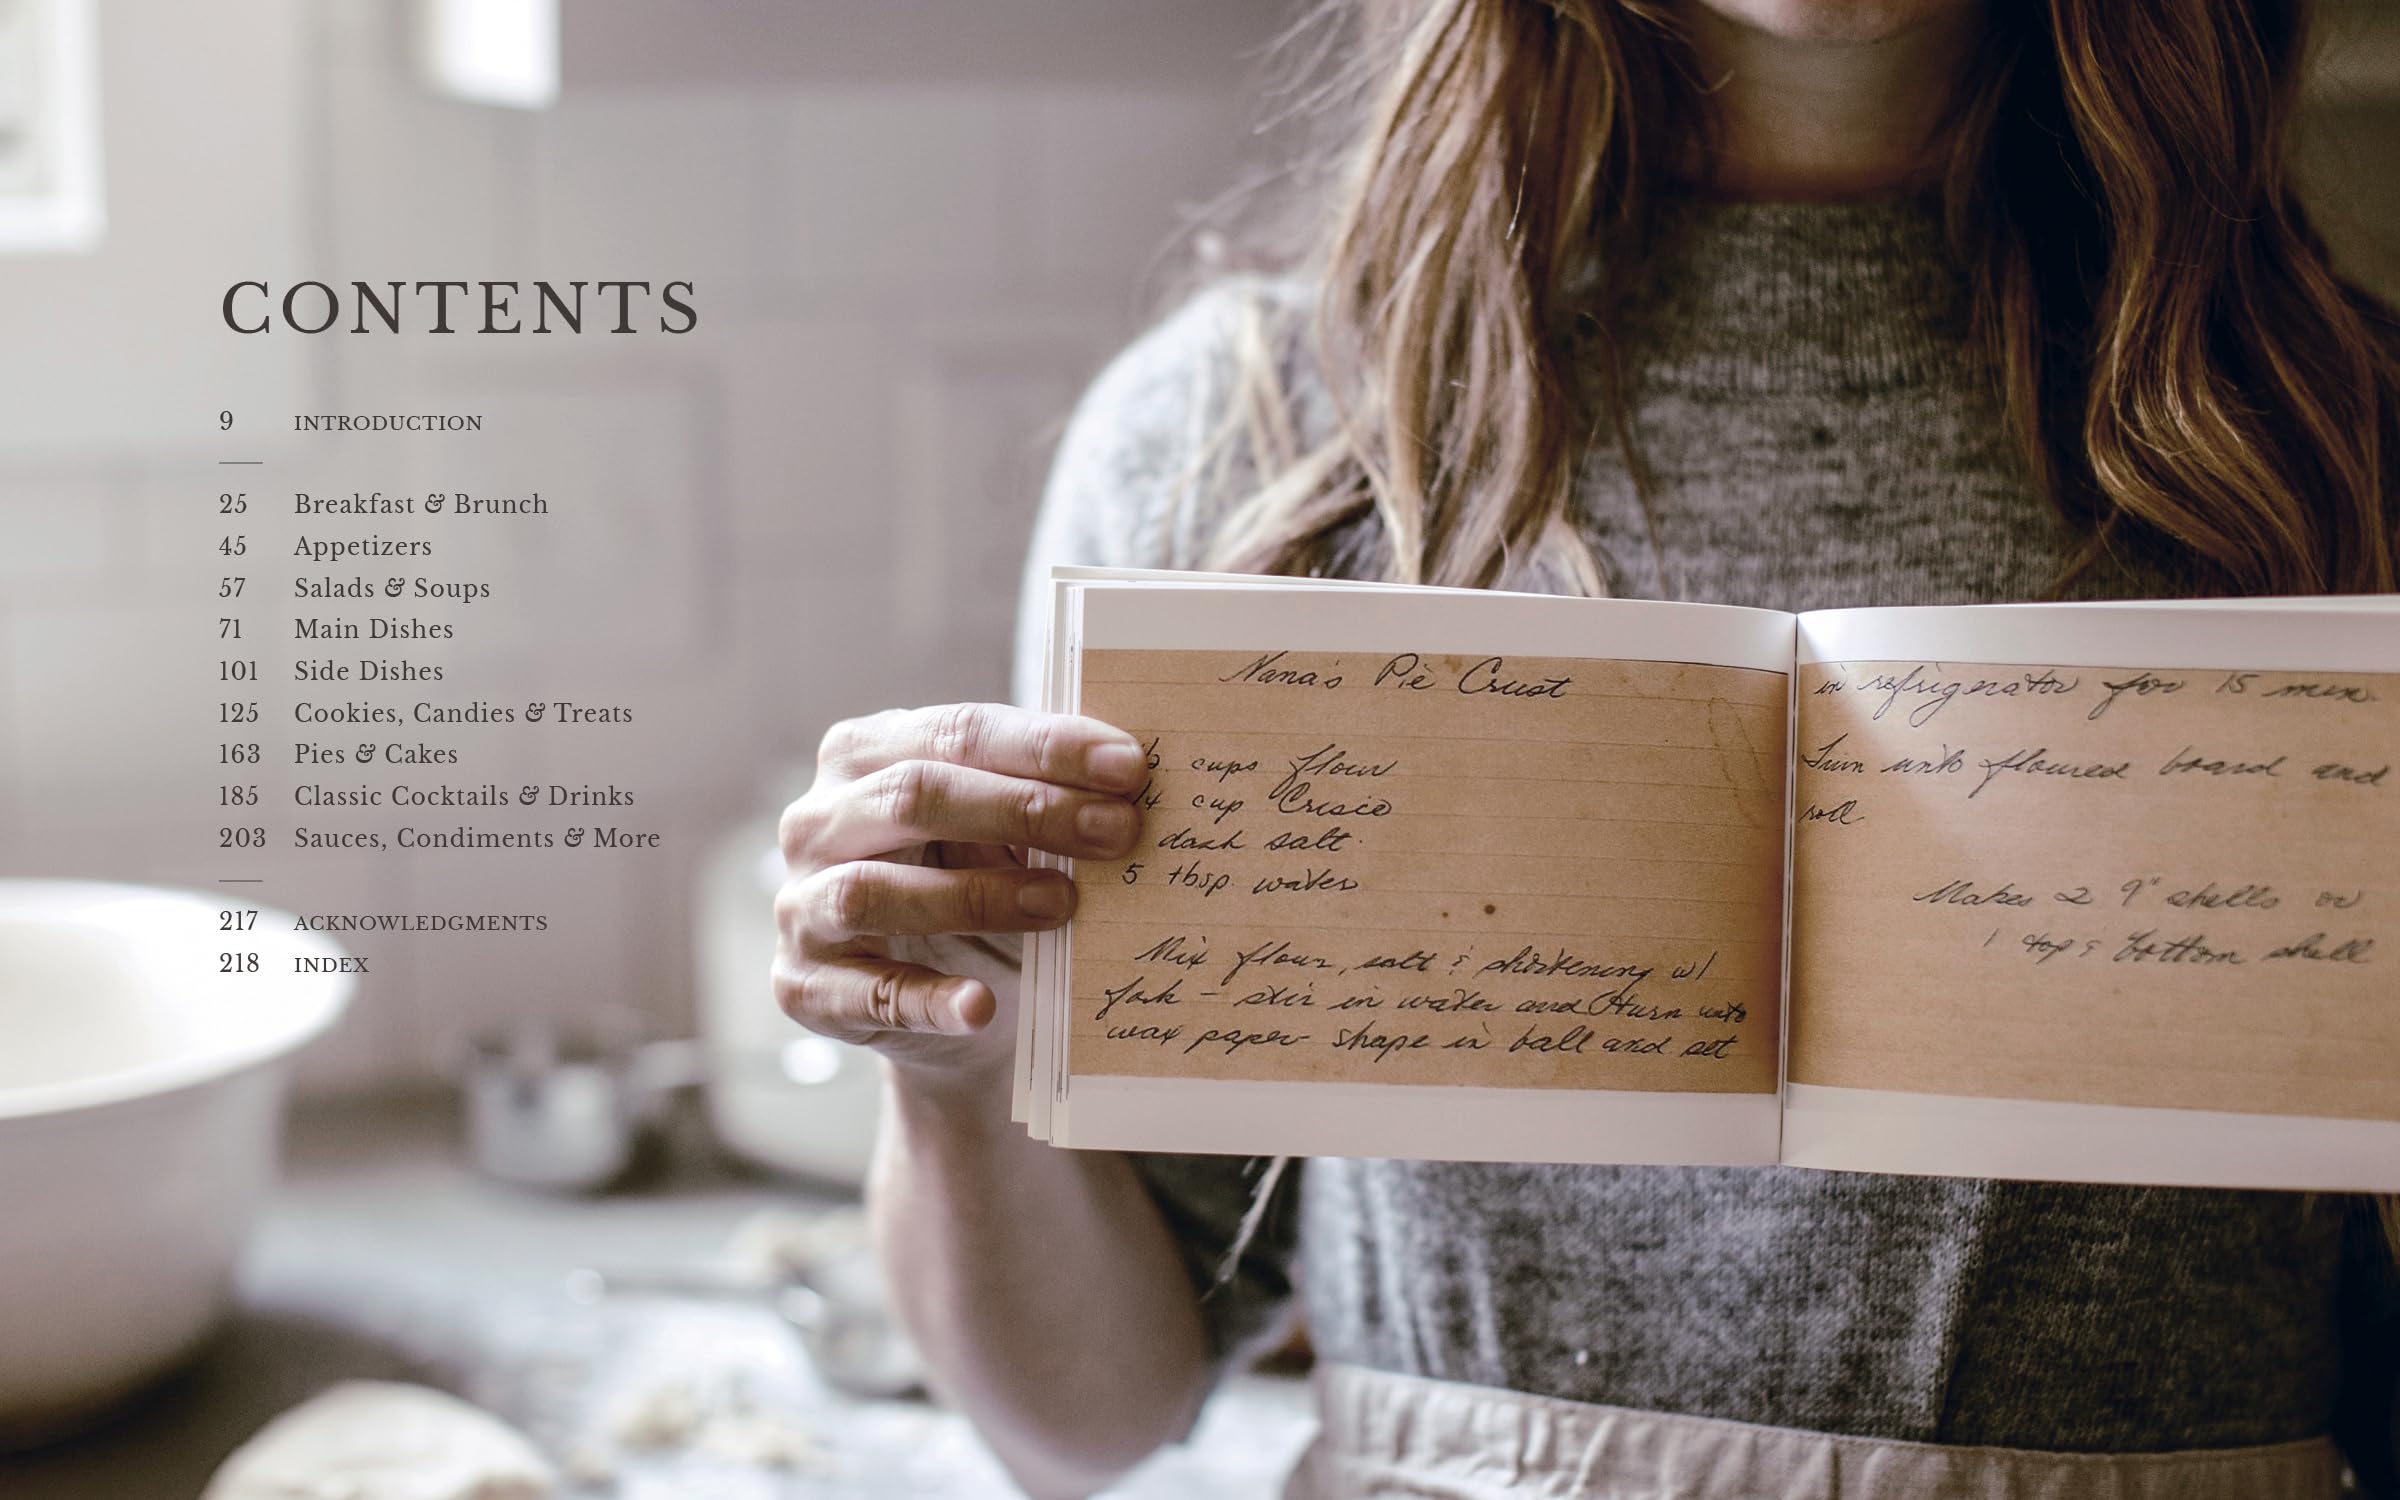 CONTENTS
9 INTRODUCTION
25 Breakfast & Brunch
45 Appetizers
57 Salads & Soups
71 Main Dishes
101 Side Dishes
125 Cookies, Candies & Treats
163 Pies & Cakes
185 Classic Cocktails & Drinks
203 Sauces, Condiments & More
217 ACKNOWLEDGMENTS
218 INDEX
Nana's Pie Crust
cups flour
cup Crisco
dash salt
5 tbsp. water
Mix flour, salt & shortening w/
fork - stir in water and turn unto
wax paper - shape in ball and set
in refrigerator for 15 min.
Turn unto floured board and
roll
Makes 2 9" shells or
1 top & bottom shell